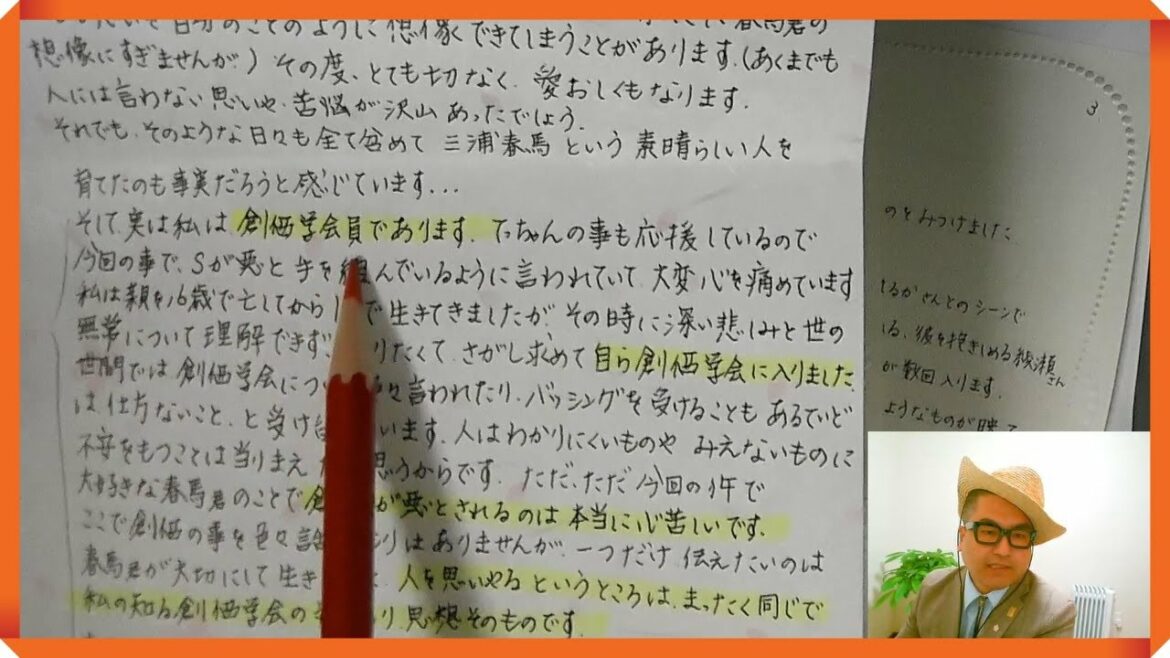 自分のことのように想像できてしまうことがあります。(あくまでも
想像にすぎませんが)その度、とても切なく、愛おしくもなります。
人には言わない思いや、苦悩が沢山あったでしょう。
それでも、そのような日々も全て含めて 三浦春馬 という 素晴らしい人を
育てたのも事実だろうと感じています...
そして、実は私は 創価学会員であります。てっちゃんの事も応援しているので
今回の事で、Sが悪と手を組んでいるように言われていて、大変心を痛めています
私は親を16歳で亡してから で生きてきましたが、その時に深い悲しみと世の
無常について理解できず、 りたくて、さがし求めて 自ら創価学会に入りました。
世間では、創価学会につ 々言われたり、バッシングを受けることもあるていど
は仕方ないこと、と受け います。人はわかりにくいものや みえないものに
不安をもつことは当りまえ 思うからです。ただ、ただ今回の件で
大好きな春馬君のことで創 が悪とされるのは本当に心苦しいです。
ここで創価の事を色々 りはありませんが、一つだけ伝えたいのは
春馬君が大切にして生き 、人を思いやるというところは、まったく同じで
私の知る創価学会の り、思想そのものです。
3.
のとみつけました
るかさんとのシーンで
いる、彼を抱きしめる綾瀬さん
が数回入ります。
ようなものが